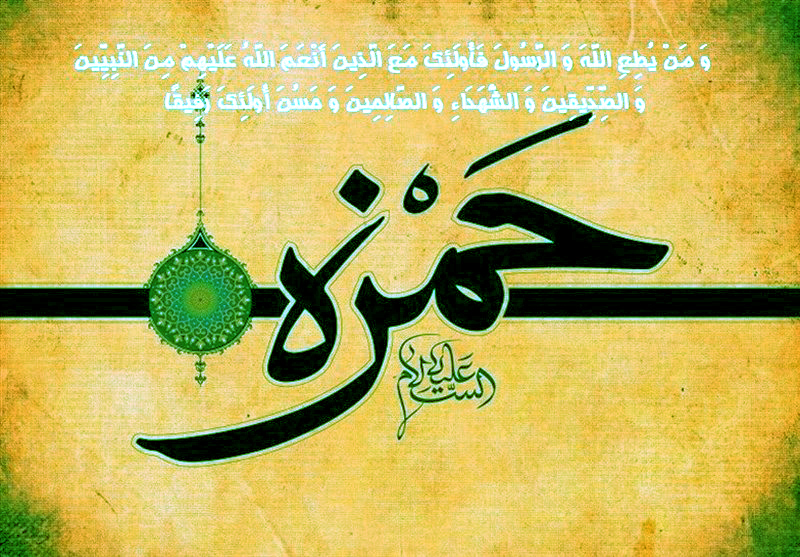 وَ مَنْ يُطِعِ اللّهَ وَ الرَّسُولَ فَأُولَئِكَ مَعَ الَّذِينَ أَنْعَمَ اللّهُ عَلَيْهِمْ مِنَ النَّبِيِّينَ
وَ الصِّدِّيقِينَ وَ الشُّهَدَاءِ وَ الصَّالِحِينَ وَ حَسُنَ أُولَئِكَ رَفِيقًا
حَمْزه
عليه السلام